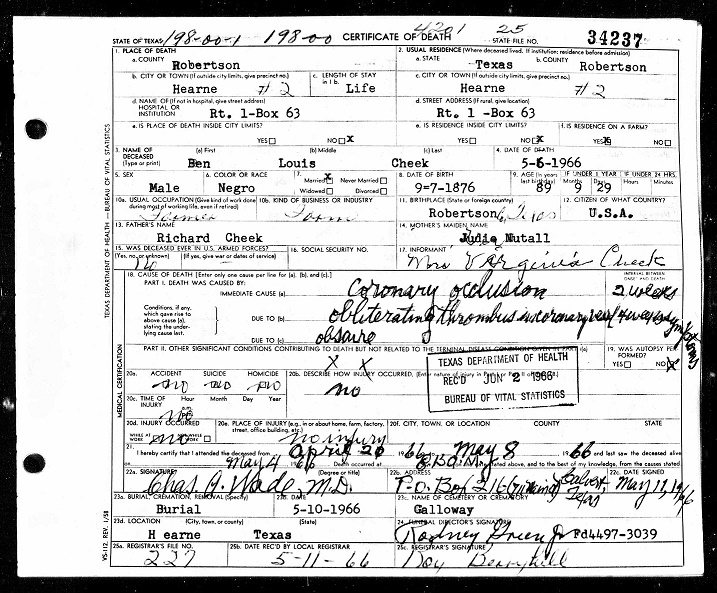 4201 25
STATE OF TEXAS 198-00-1 198-00 CERTIFICATE OF DEATH STATE FILE NO. 34237
1. PLACE OF DEATH 2. USUAL RESIDENCE (Where deceased lived. If institution: residence before admission)
a. COUNTY a. STATE b. COUNTY
Robertson Texas Robertson
b. CITY OR TOWN (If outside city limits, give precinct no.) c. LENGTH OF STAY in 1 b. c. CITY OR TOWN (If outside city limits, give precinct no.)
Hearne #2 Life Hearne #2
d. NAME OF (If not in hospital, give street address) d. STREET ADDRESS (If rural, give location)
HOSPITAL OR
INSTITUTION Rt. 1-Box 63 Rt. 1 -Box 63
e. IS PLACE OF DEATH INSIDE CITY LIMITS? e. IS RESIDENCE INSIDE CITY LIMITS? f. IS RESIDENCE ON A FARM?
YES NO X YES NO X YES X NO
3. NAME OF DECEASED (Type or print) (a) First (b) Middle (c) Last 4. DATE OF DEATH
Ben Louis Cheek 5-6-1966
5. SEX 6. COLOR OR RACE 7. Married X Never Married 8. DATE OF BIRTH 9. AGE (In years last birthday) IF UNDER 1 YEAR IF UNDER 24 HRS
Male Negro Widowed Divorced 9=7-1876 89 9 29
10a. USUAL OCCUPATION (Give kind of work done during most of working life, even if retired) 10b. KIND OF BUSINESS OR INDUSTRY 11. BIRTHPLACE (State or foreign country) 12. CITIZEN OF WHAT COUNTRY?
Farmer Farm Robertson Co, Texas U.S.A.
13. FATHER'S NAME 14. MOTHER'S MAIDEN NAME
Richard Cheek Judie Nutall
15. WAS DECEASED EVER IN U.S. ARMED FORCES? 16. SOCIAL SECURITY NO. 17. INFORMANT
(Yes, no, or unknown) (If yes, give war or dates of service)
No Mrs Virginia Cheek
18. CAUSE OF DEATH [Enter only one cause per line for (a), (b), and (c).] INTERVAL BETWEEN ONSET AND DEATH
PART I. DEATH WAS CAUSED BY:
IMMEDIATE CAUSE (a) Coronary occlusion 2 weeks
Conditions, if any, which gave rise to above cause (a), stating the underlying cause last.
DUE TO (b) obliterating thrombus in coronary
DUE TO (c) obscure
PART II. OTHER SIGNIFICANT CONDITIONS CONTRIBUTING TO DEATH BUT NOT RELATED TO THE TERMINAL DISEASE CONDITION GIVEN IN PART I(a) 19. WAS AUTOPSY PERFORMED?
X X YES NO X
TEXAS DEPARTMENT OF HEALTH
REC'D JUN 2 1966
BUREAU OF VITAL STATISTICS
20a. ACCIDENT SUICIDE HOMICIDE 20b. DESCRIBE HOW INJURY OCCURRED.
no no no no
20c. TIME OF INJURY Hour Month Day Year
No
20d. INJURY OCCURRED 20e. PLACE OF INJURY (e.g., in or about home, farm, factory, street, office building, etc.) 20f. CITY, TOWN, OR LOCATION COUNTY STATE
WHILE AT WORK no no injury
21. I hereby certify that I attended the deceased from April 26 1966 May 8 1966 and last saw the deceased alive
May 4 66 Death occurred at stated above, and to the best of my knowledge, from the causes stated
22a. SIGNATURE 22b. ADDRESS 22c. DATE SIGNED
Chas J. Wade, M.D. P.O. Box 216 Calvert, Texas May 11, 1966
23a. BURIAL, CREMATION, REMOVAL (Specify) 23b. DATE 23c. NAME OF CEMETERY OR CREMATORY
Burial 5-10-1966 Galloway
23d. LOCATION (City, town, or county) (State) 24. FUNERAL DIRECTOR'S SIGNATURE
Hearne Texas Rodney Fd4497-3039
25a. REGISTRAR'S FILE NO. 25b. DATE REC'D BY LOCAL REGISTRAR 25c. REGISTRAR'S SIGNATURE
227 5-11-66 Roy Berryhill
TEXAS DEPARTMENT OF HEALTH — BUREAU OF VITAL STATISTICS
MEDICAL CERTIFICATION
VS-112, REV. 1/58